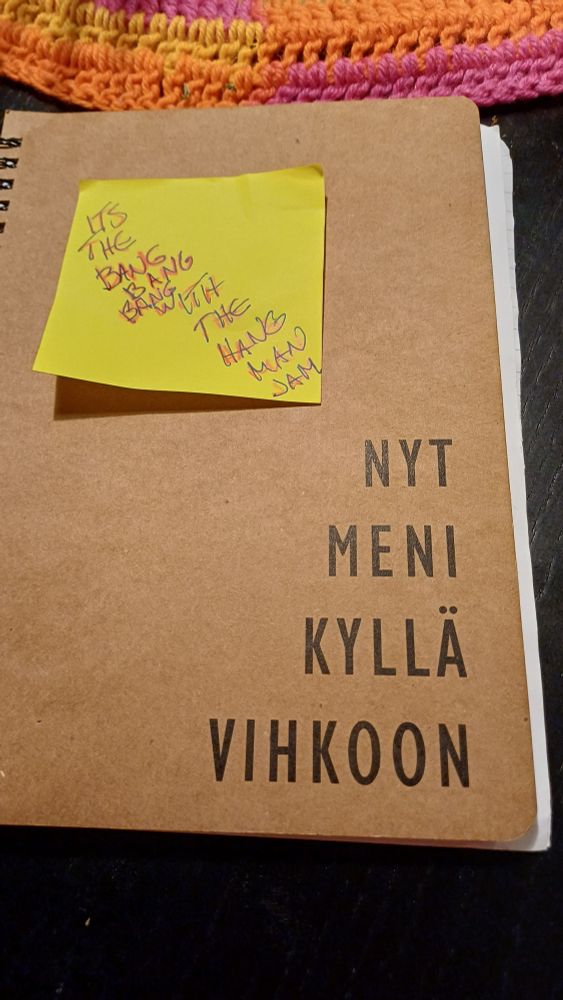 ITS
THE
BANG
BANG
BANG WITH
THE
HANG
MAN
JAM
NYT
MENI
KYLLÄ
VIHKOON